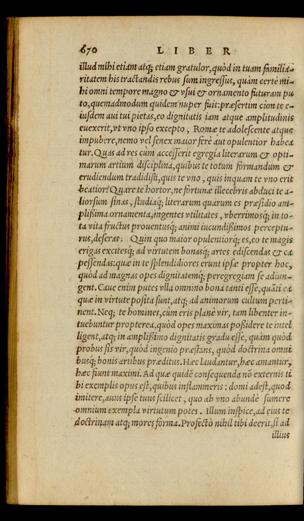 670 LIBER
illud mihi etiam atq; etiam gratulor, quòd in tuam familia-
ritatem his tractandis rebus sum ingressus, quàm certè mi-
hi omni tempore magno & vsui & ornamento futuram pu
to, quemadmodum quidem nuper fuit: præsertim cùm te
eiusdem aui tui pietas, eo dignitatis iam atque amplitudinis
euexerit, vt vno ipso excepto, Romæ te adolescente atque
impubere, nemo vel senex maior ferè aut opulentior habea
tur. Quas ad res cum accesserit egregia literarum & opti-
marum artium disciplina, quibus te totum formandum &
erudiendum tradidisti, quis te vno, quis inquam te vno erit
beatior? Quare te hortor, ne fortunæ illecebris abduci te a-
liorsum sinas, studiaq; literarum quarum es præsidio am-
plißima ornamenta, ingentes vtilitates, vberrimosq; in to-
ta vita fructus prouentusq; animi iucundißimos perceptu-
rus, deseras: Quin quo maior opulentiorq; es, eo te magis
erigas excitesq; ad virtutem bonasq; artes ediscendas & ca
pessendas: quæ in te splendidiores erunt ipsæ propter hoc,
quòd ad magnas opes dignitatemq; peregregiam se adiun-
gent. Caue enim putes vlla omnino bona tanti esse, quāti ea
quæ in virtute posita sunt, atq; ad animorum cultum perti-
nent. Neq; te homines, cum eris planè vir, tam libenter in-
tuebuntur propterea, quòd opes maximas poßidere te intel
ligent, atq; in amplißimo dignitatis gradu esse, quàm quòd
probus sis vir, quòd ingenio præstans, quòd doctrina omni
busq; bonis artibus præditus. Hæc laudantur, hæc amantur,
hæc fiunt maximi. Ad quæ quidē consequenda nō externis ti
bi exemplis opus est, quibus inflammeris: domi adest, quod
imitere, auus ipse tuus scilicet, quo ab vno abundè sumere
omnium exempla virtutum potes. Illum inspice, ad eius te
doctrinam atq; mores forma. Profectò nihil tibi deerit, si ad
illius